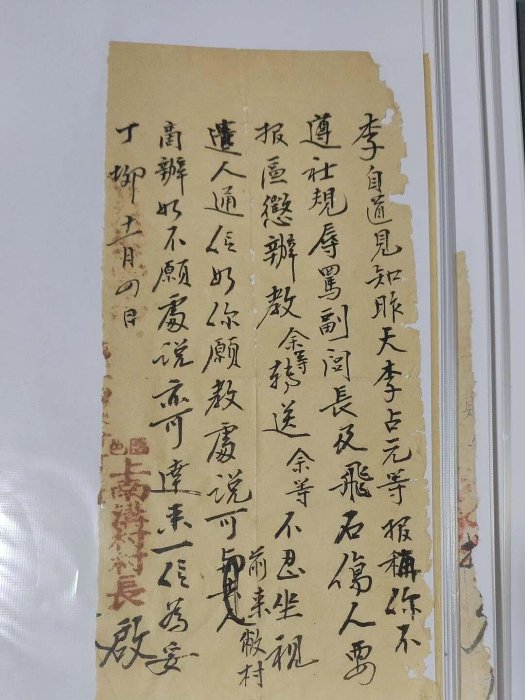 李自道見知昨天李占元等报稱你不
遵社規辱罵副闾長及飛石傷人要
报區懲辦教余等轉送余等不忍坐視
遣人通信如你願教處説可前来敝村
商辦如不願處説亦可達来一信為妥
丁卯十一月四日
上南溝村村長
啟